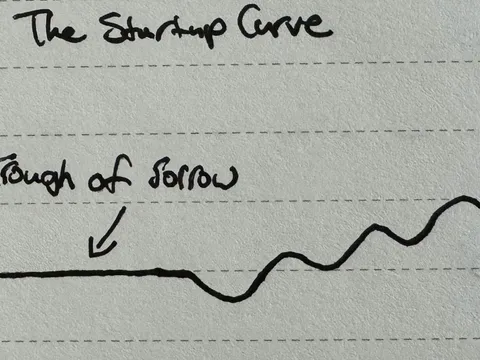 The Startup Curve
Trough of Sorrow